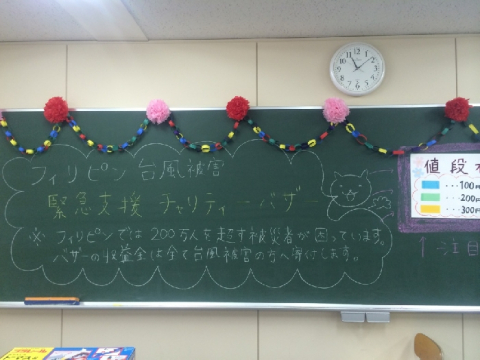 フィリピン 台風被害
緊急支援 チャリティーバザー
※ フィリピンでは200万人を超す被災者が困っています。
バザーの収益金は全て台風被害の方へ寄付します。
値段
・・・100円
・・・200円
・・・300円
↑注目